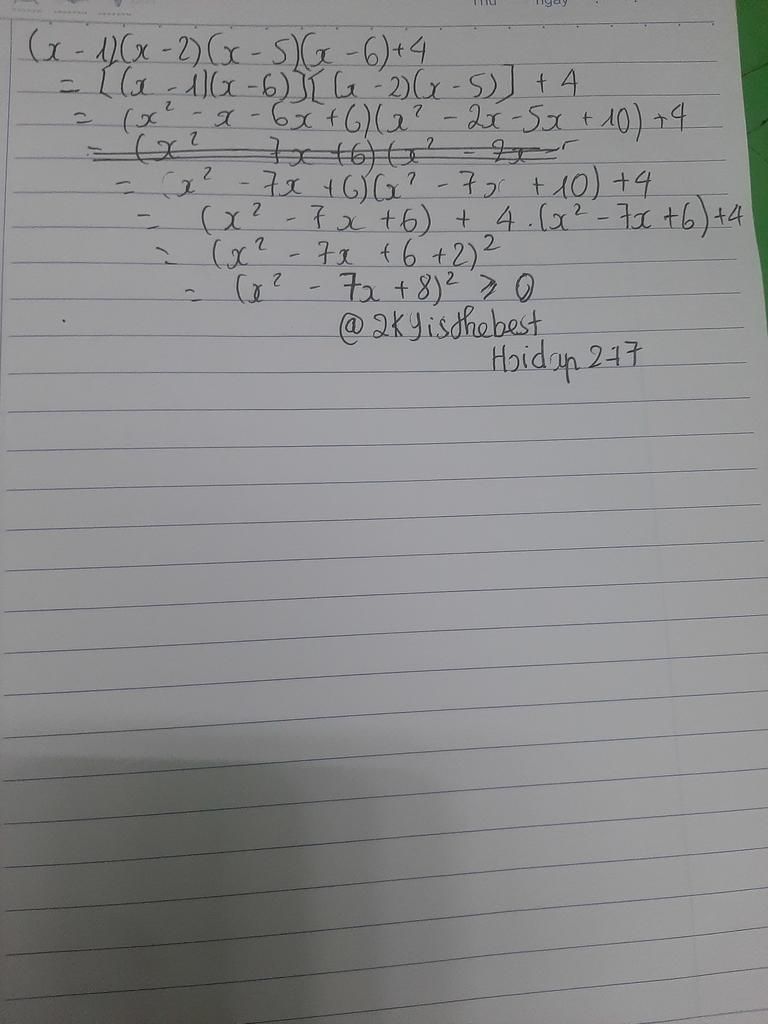 (x - 1)(x - 2)(x - 5)(x - 6) + 4
= [(x - 1)(x - 6)][(x - 2)(x - 5)] + 4
= (x² - x - 6x + 6)(x² - 2x - 5x + 10) + 4
= (x² 7x + 6)(x² - 7x
= (x² - 7x + 6)(x² - 7x + 10) + 4
= (x² - 7x + 6) + 4 . (x² - 7x + 6) + 4
= (x² - 7x + 6 + 2)²
= (x² - 7x + 8)² ⩾ 0
@2Kyisthebest
Hoidap 247